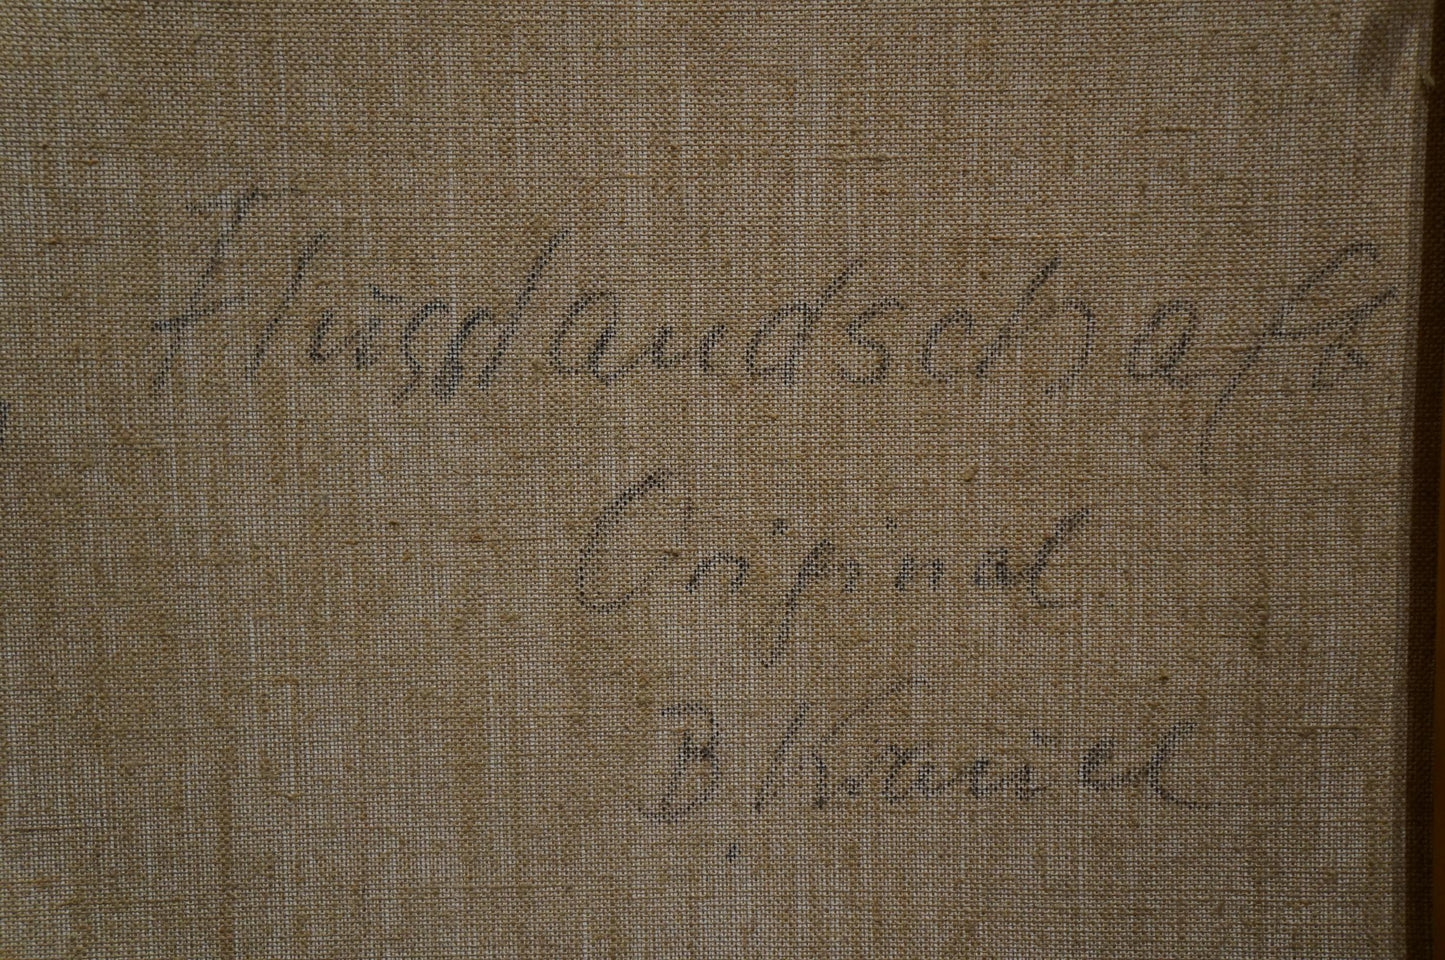 Flußlandschaft
Original
B.